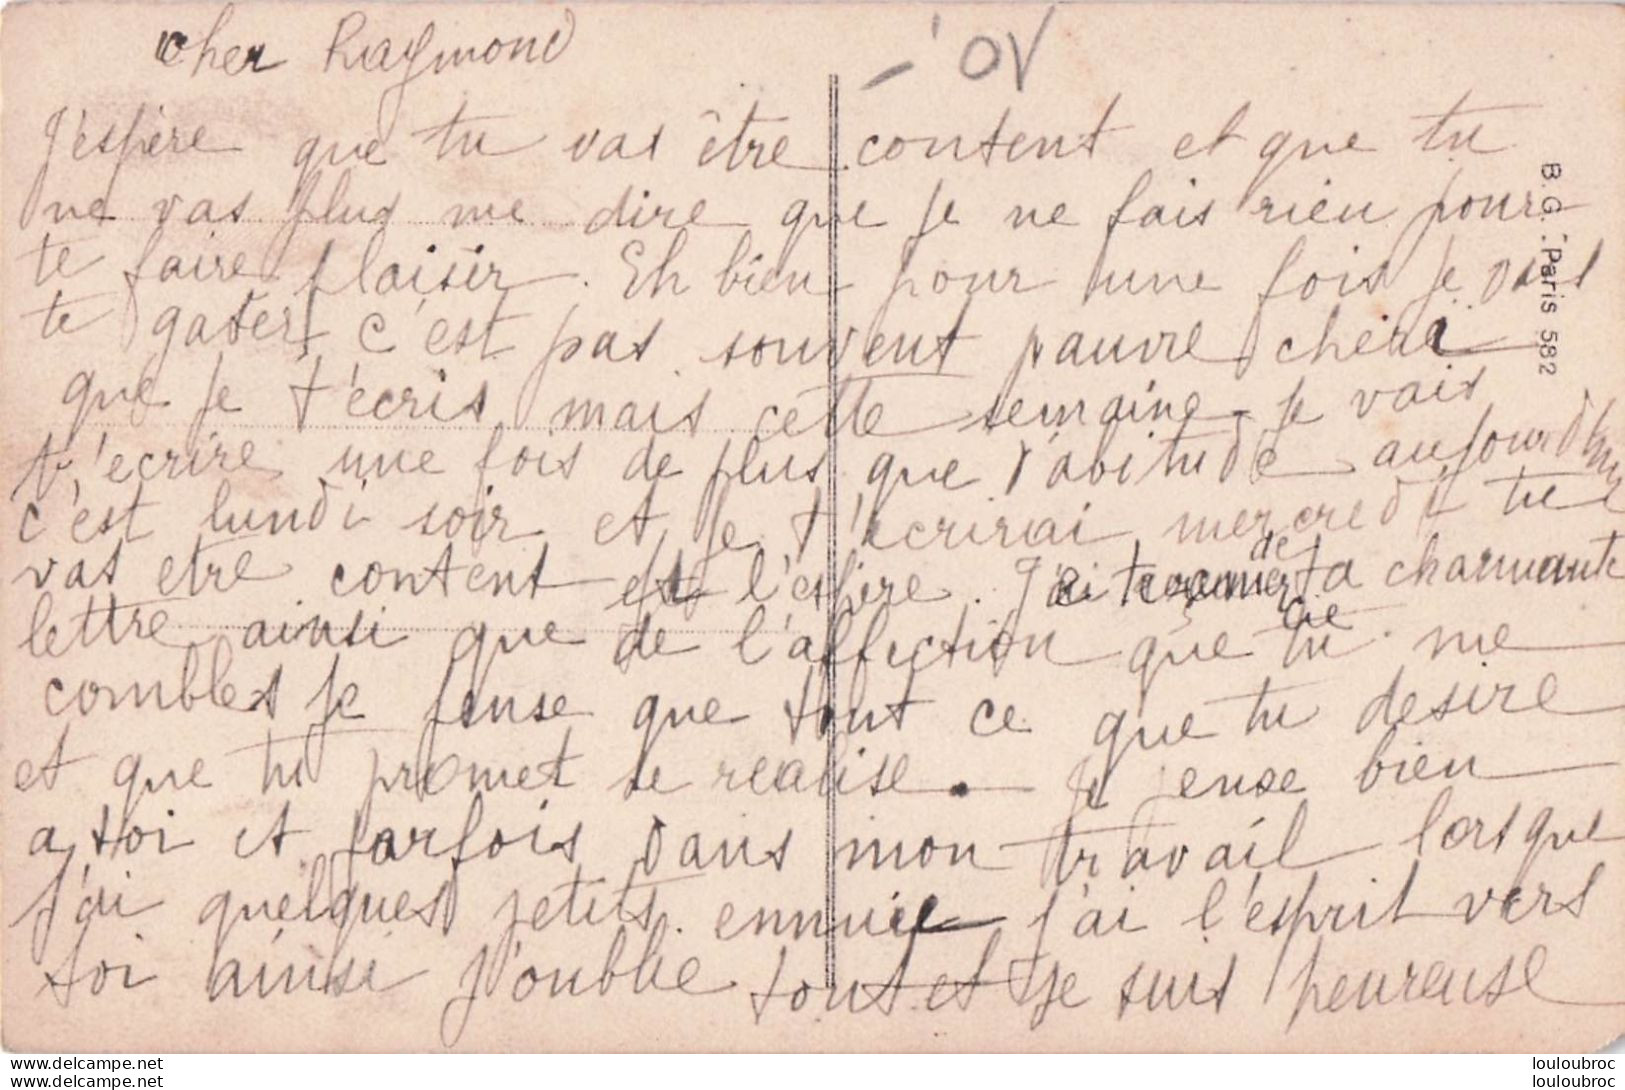 cher Raymond
J'espère que tu vas être content et que tu
ne vas plus me dire que je ne fais rien pour
te faire plaisir. Eh bien pour une fois je vais
te gater c'est pas souvent pauvre cheri
que je t'écris mais cette semaine je vais
t'ecrire une fois de plus que d'abitude aujourdhui
c'est lundi soir et je t'ecrirai mercredi tu
vas etre content je l'espère. J'ai de ta charmante
lettre ainsi que de l'affection que tu me
combles je pense que tout ce que tu desire
et que tu promet se realise. Je pense bien
a toi et parfois dans mon travail lorsque
j'ai quelques petits ennuie j'ai l'esprit vers
toi ainsi j'oublie tout et je suis heureuse
B.G. Paris 582
louloubroc
louloubroc
www.delcampe.net
www.delcampe.net